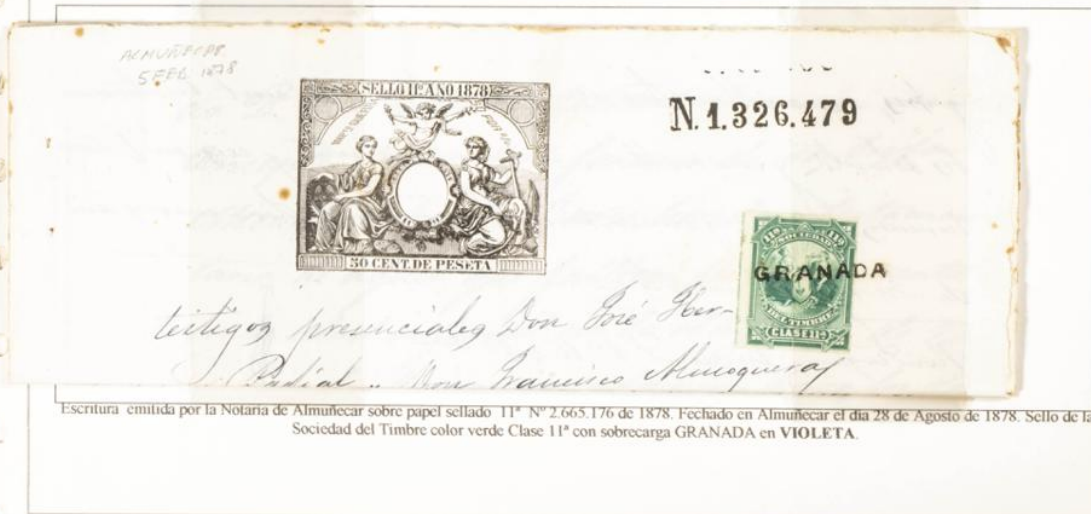 ALMUÑECAR
5 FEB 1878
SELLO 11º AÑO 1878
50 CENT. DE PESETA
N. 1.326.479
119 119
SOCIEDAD
GRANADA
DEL TIMBRE
CLASE 11ª
testigos presenciales Don José Her-
Padial .. Don Francisco
Escritura emitida por la Notaria de Almuñecar sobre papel sellado 11ª Nº 2.665.176 de 1878. Fechado en Almuñecar el dia 28 de Agosto de 1878. Sello de la
Sociedad del Timbre color verde Clase 11ª con sobrecarga GRANADA en VIOLETA.